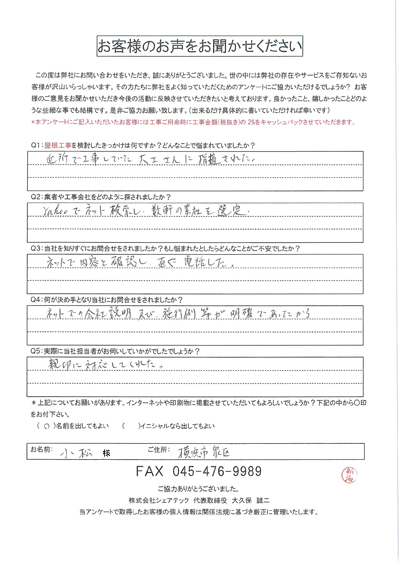 お客様のお声をお聞かせください
この度は弊社にお問い合わせをいただき、誠にありがとうございました。世の中には弊社の存在やサービスをご存知ないお
客様が沢山いらっしゃいます。その方たちに弊社をよく知っていただくためのアンケートにご協力いただけるでしょうか？ お客
様のご意見をお聞かせいただき今後の活動に反映させていただきたいと考えております。良かったこと、嬉しかったことどのよ
うな些細な事でも結構です。是非ご協力お願い致します。（出来るだけ具体的に書いていただければ幸いです）
*本アンケートにご記入いただいたお客様には工事ご用命時に工事金額（税抜き）の 2%をキャッシュバックさせていただきます。
Q1：屋根工事を検討したきっかけは何ですか？どんなことで悩まれていましたか？
近所で工事していた大工さんに指摘された。
Q2：業者や工事会社をどのように探されましたか？
Yahooでネット検索し、数軒の業社を選定。
Q3：当社を知りすぐにお問合せをされましたか？もし悩まれたとしたらどんなことがご不安でしたか？
ネットで内容を確認し、直ぐ電話した。
Q4：何が決め手となり当社にお問合せをされましたか？
ネットでの会社説明及び、施行例等が明確であったから
Q5：実際に当社担当者がお伺いしていかがでしたでしょうか？
親切に対応してくれた。
＊上記についてお願いがあります。インターネットや印刷物に掲載させていただいてもよろしいでしょうか？下記の中から〇印
をお付下さい。
（ ○ ）名前を出してもよい （ ）イニシャルなら出してもよい
お名前： 小松 様 ご住所： 横浜市泉区
FAX 045-476-9989
ご協力ありがとうございました。
株式会社シェアテック 代表取締役 大久保 誠二
当アンケートで取得したお客様の個人情報は関係法規に基づき厳正に管理いたします。